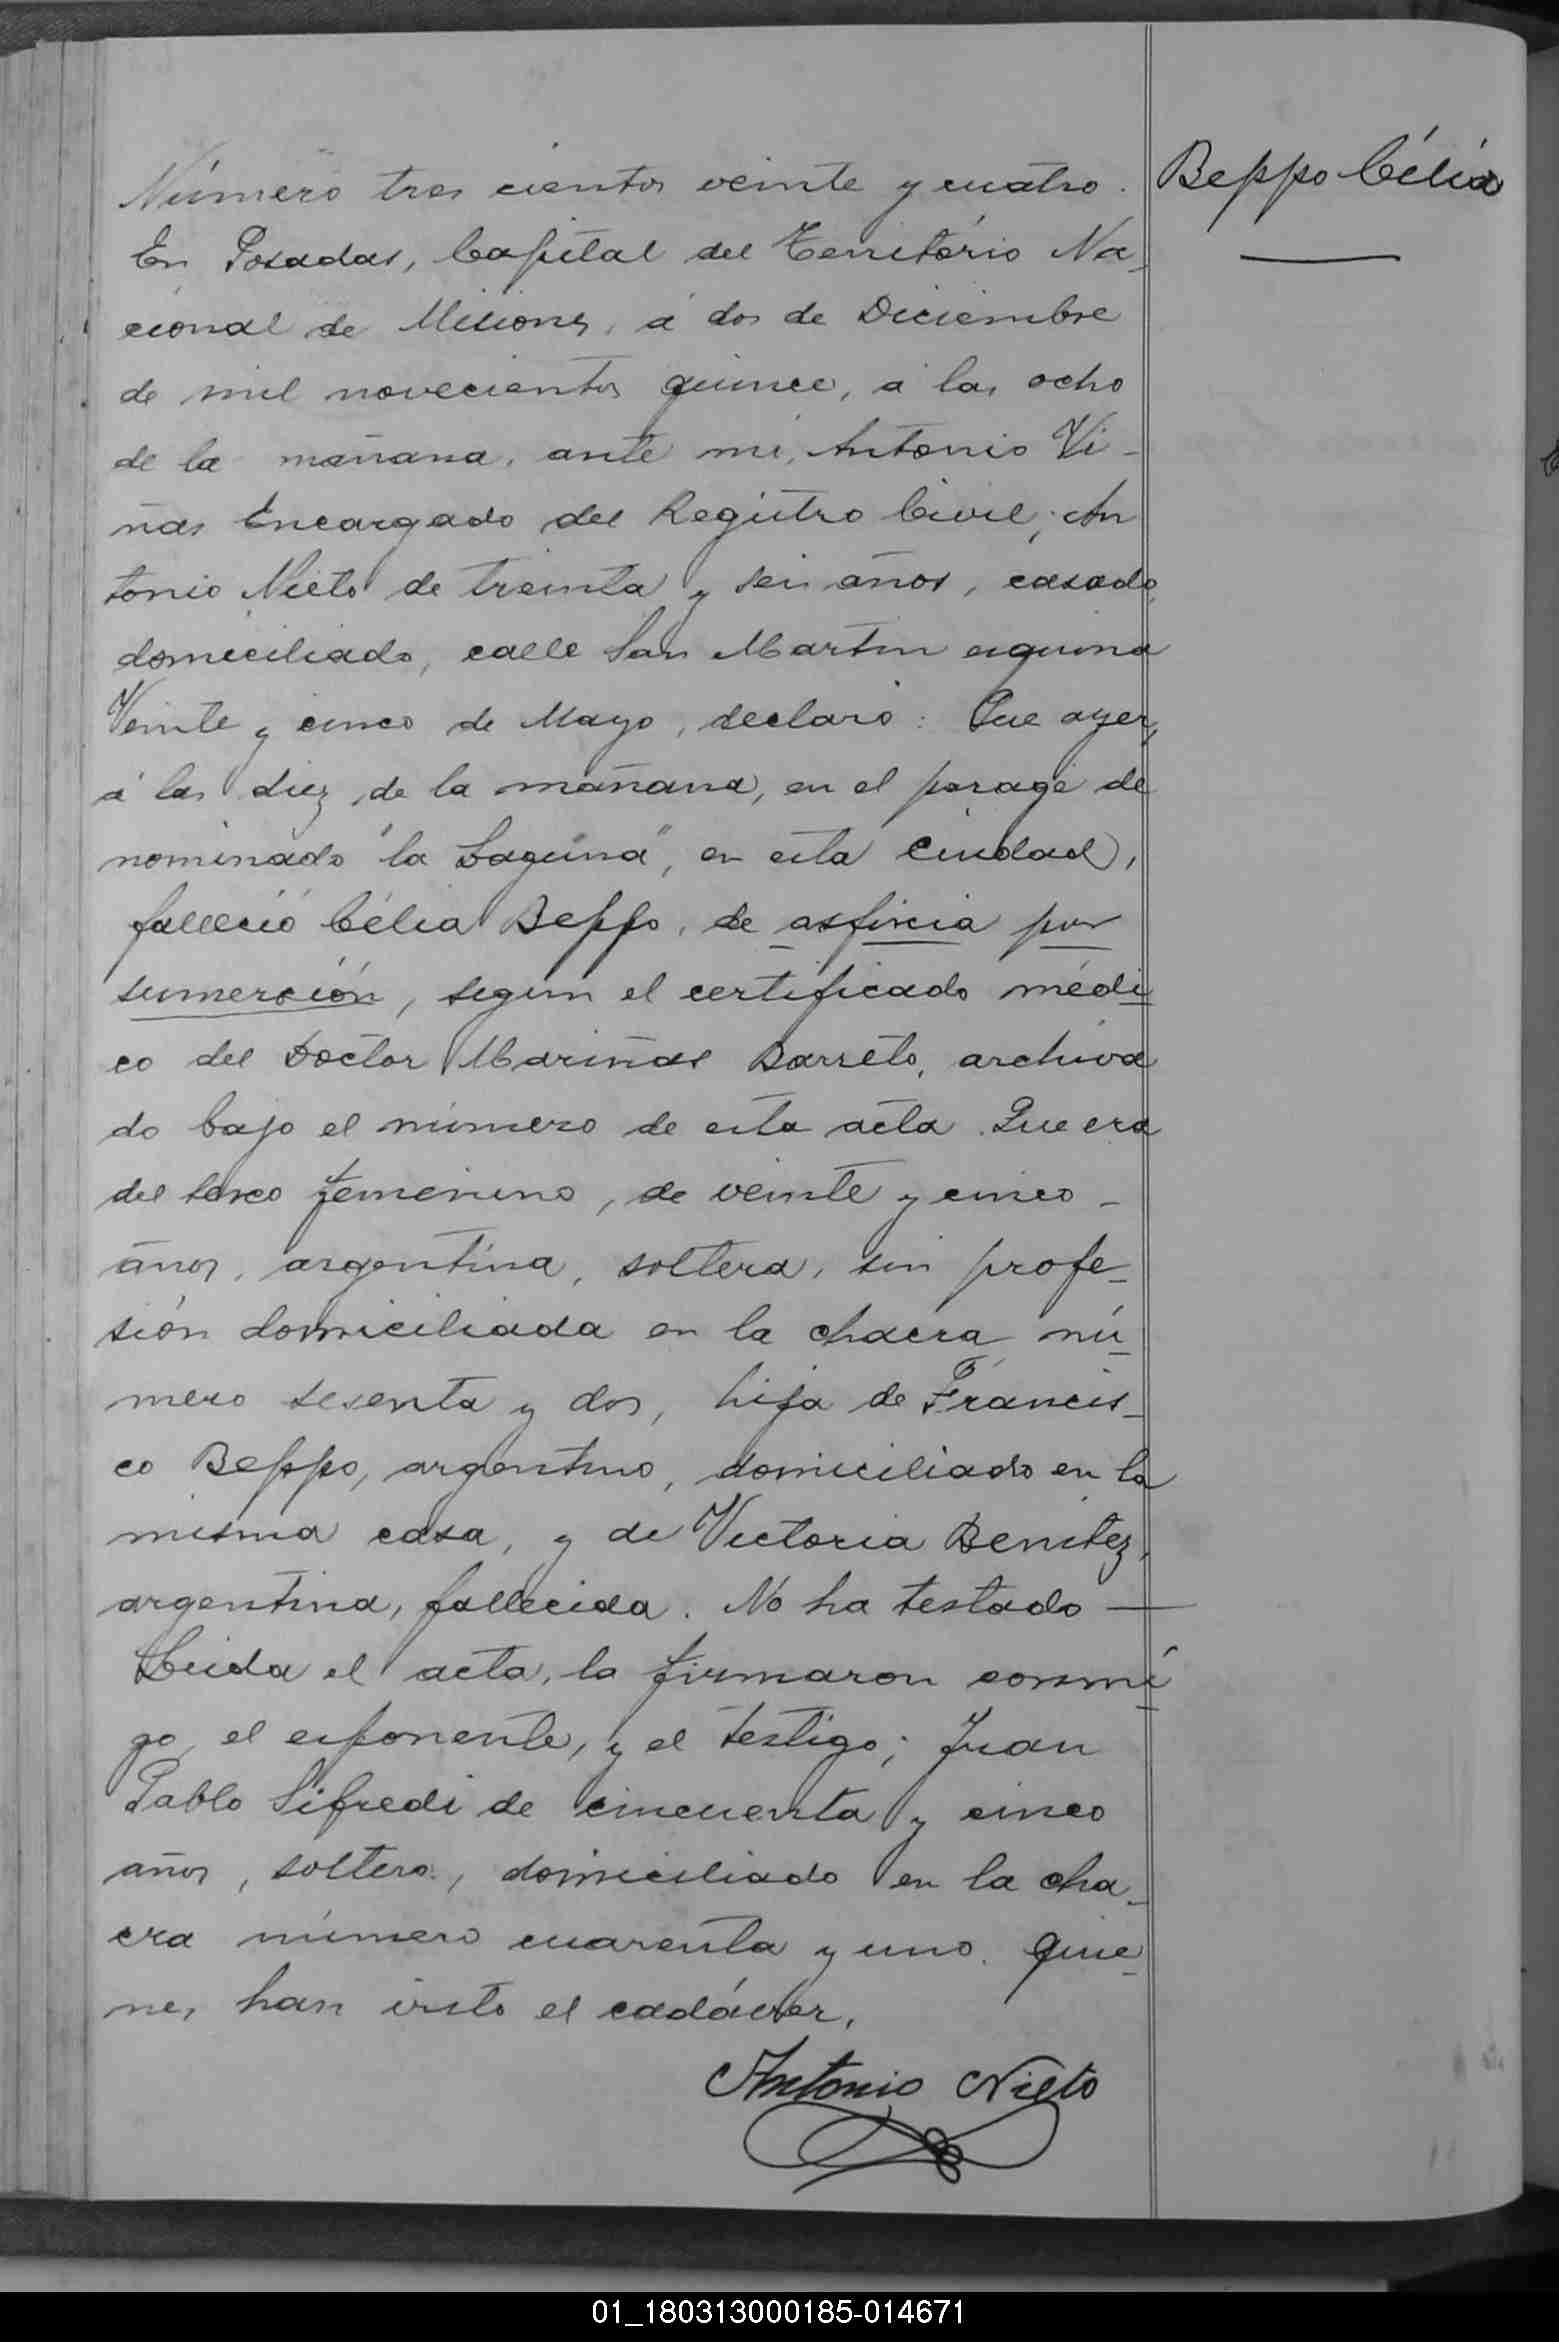 Número tres cientos veinte y cuatro.
Beppo Célia
En Posadas, Capital del Território Na-
cional de Misiones, á dos de Diciembre
de mil novecientos quince, á las ocho
de la mañana, ante mi, Antonio Vi-
ñas Encargado del Registro Civil, An
tonio Nieto de treinta y seis años, casado,
domiciliado, calle San Martin esquina
Veinte y cinco de Mayo, declaró: Que ayer,
á las diez de la mañana, en el parage de
nominado "la Laguna", en esta Ciudad,
falleció Célia Beppo, de asficcia por
sumerción, segun el certificado médi
co del Doctor Mariñas Barreto, archiva
do bajo el número de esta acta. Que era
del sexo femenino, de veinte y cinco -
años, argentina, soltera, sin profe-
sión domiciliada en la chacra nú-
mero sesenta y dos, hija de Francis-
co Beppo, argentino, domiciliado en la
misma casa, y de Victoria Benitez,
argentina, fallecida. No ha testado —
Leida el acta, la firmaron conmi
go el esponente, y el testigo; Juan
Pablo Sifredi de cincuenta y cinco
años, soltero, domiciliado en la cha-
cra número cuarenta y uno. Quie-
nes han visto el cadáver.
Antonio Nieto
01_180313000185-014671